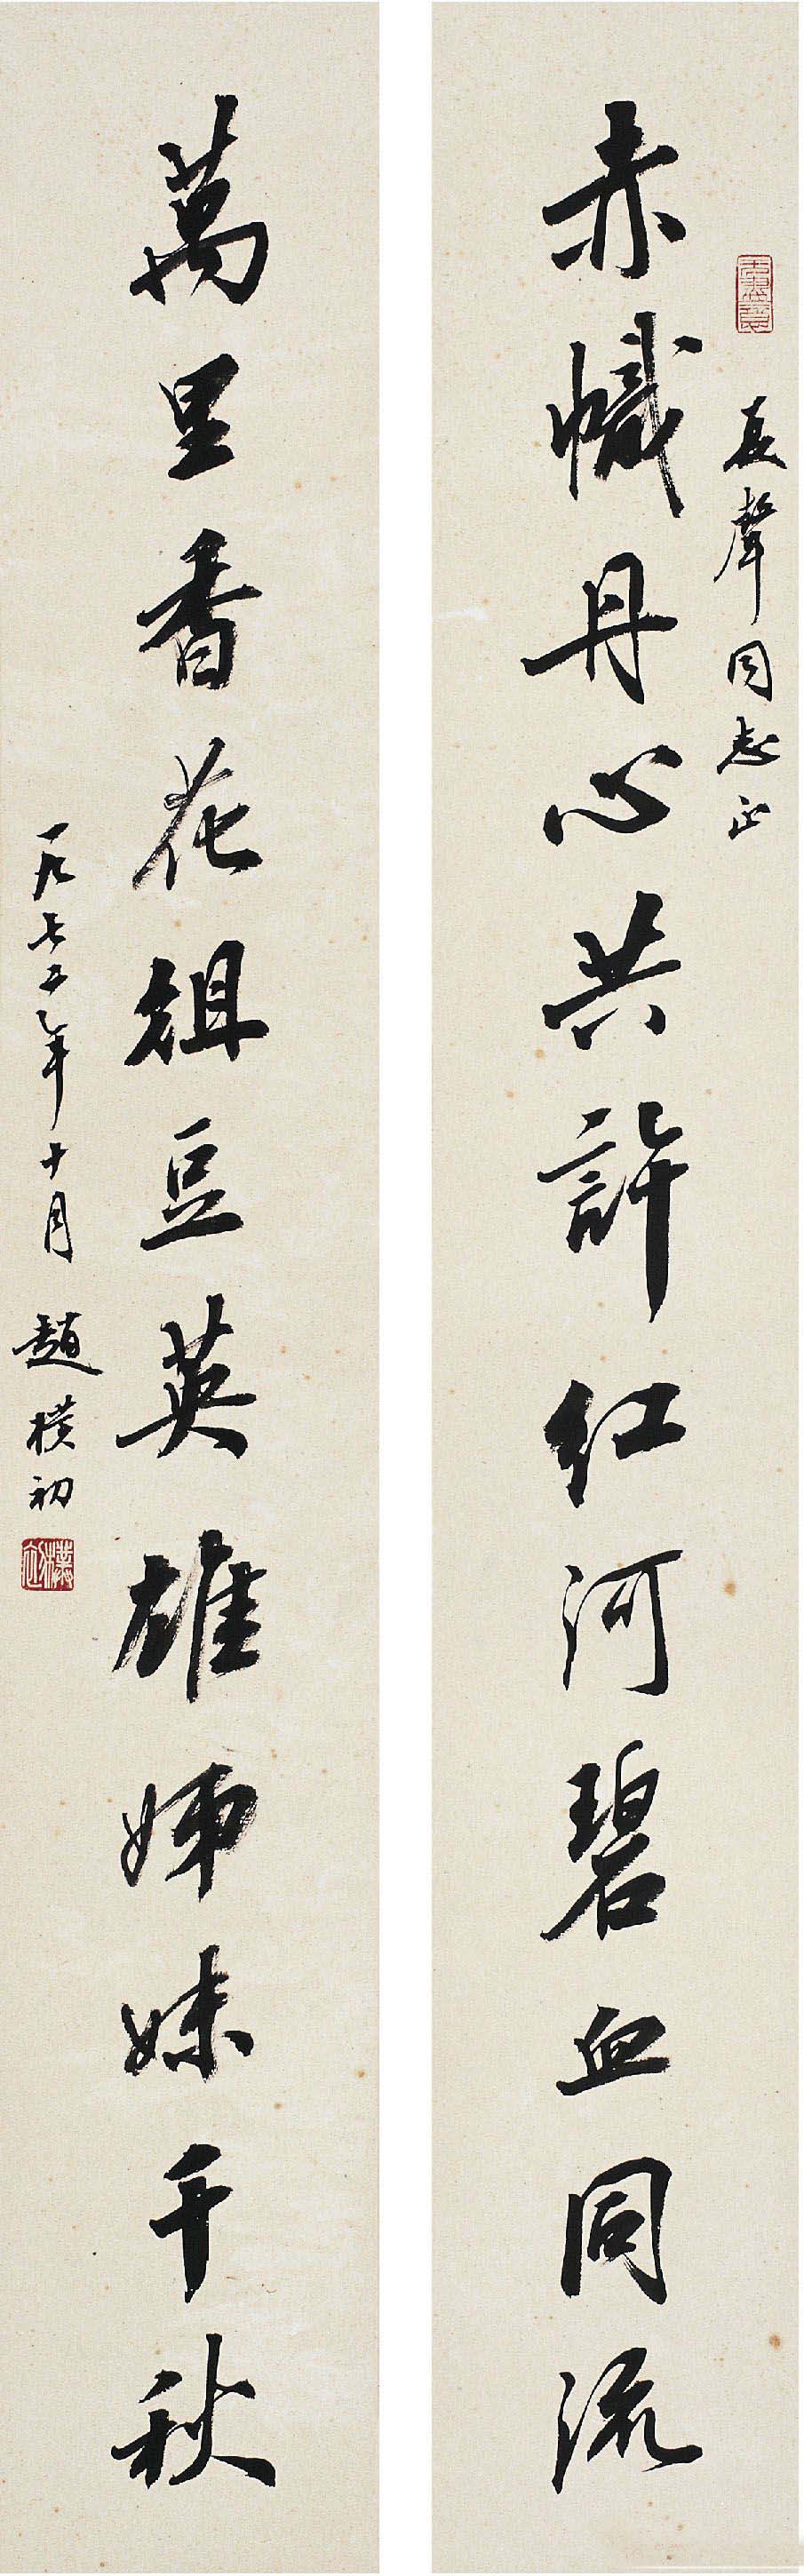 赤幟丹心共許紅河碧血同流
長聲同志正
萬里香花俎豆英雄姊妹千秋
一九七五年十月 趙樸初